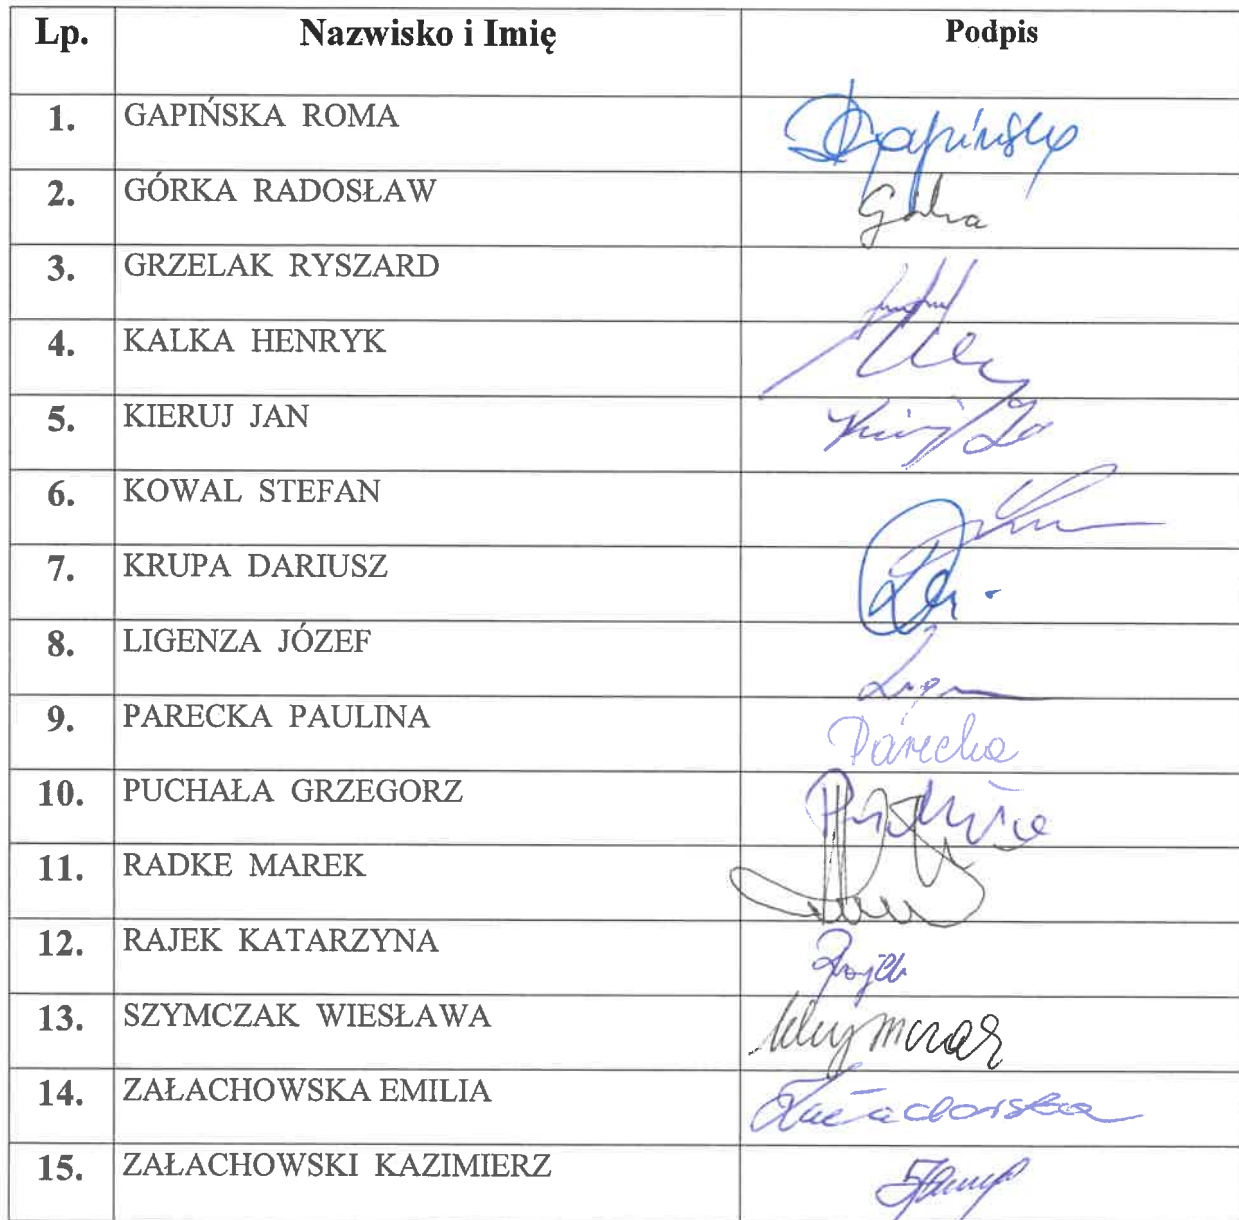 Lp. Nazwisko i Imię Podpis
1. GAPIŃSKA ROMA Gapińska
2. GÓRKA RADOSŁAW Górka
3. GRZELAK RYSZARD
4. KALKA HENRYK
5. KIERUJ JAN
6. KOWAL STEFAN
7. KRUPA DARIUSZ
8. LIGENZA JÓZEF
9. PARECKA PAULINA Parecka
10. PUCHAŁA GRZEGORZ
11. RADKE MAREK
12. RAJEK KATARZYNA
13. SZYMCZAK WIESŁAWA
14. ZAŁACHOWSKA EMILIA
15. ZAŁACHOWSKI KAZIMIERZ